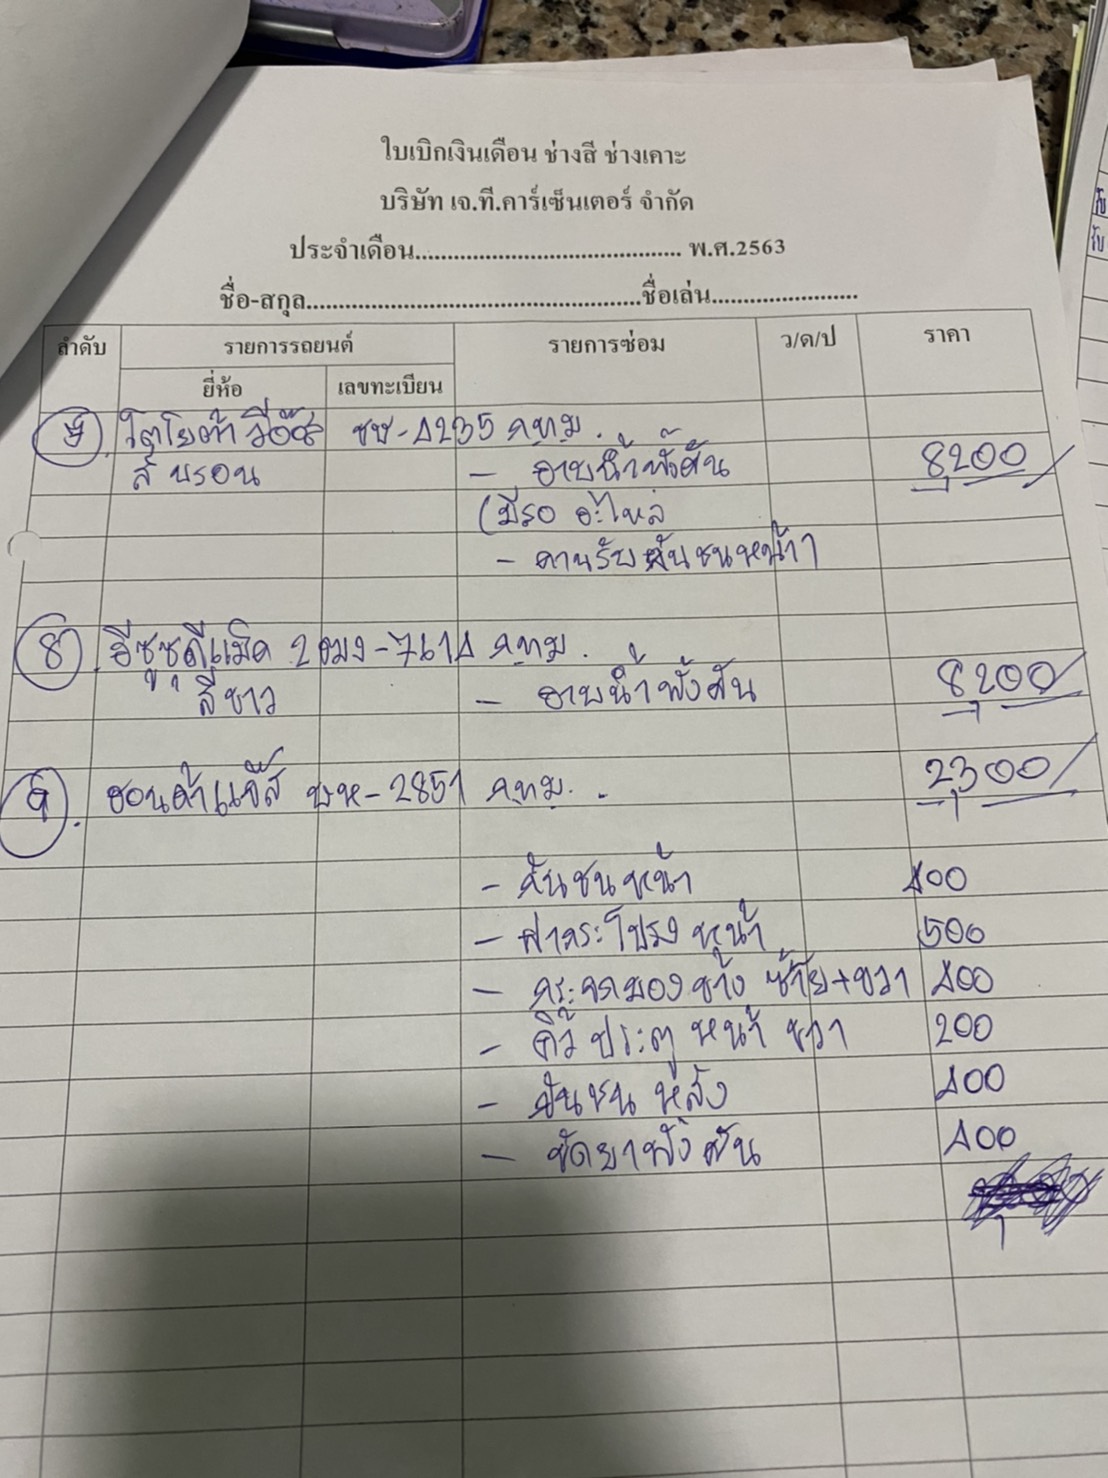 ใบเบิกเงินเดือน ช่างสี ช่างเคาะ
บริษัท เจ.ที.คาร์เซ็นเตอร์ จำกัด
ประจำเดือน........................................ พ.ศ.2563
ชื่อ-สกุล..................................................ชื่อเล่น.......................
ลำดับ รายการรถยนต์ รายการซ่อม ว/ด/ป ราคา
ยี่ห้อ เลขทะเบียน
โตโยต้า วีออส ชษ-4235 กทม.
สี บรอน - อาบน้ำพ้งคัน 8200
(มีรอ อะไหล่
- คานรับกันชนหน้า)
8. อีซูซุดีแม็ค 2ฒง-7614 กทม.
สีขาว - อาบน้ำพ้งคัน 8200
9. ฮอนด้าแจ๊ส ษห-2851 กทม. 2300
- กันชนหน้า 400
- ฝากระโปรงหน้า 500
- กระจกมองข้าง ซ้าย+ขวา 400
- คิ้วประตู หน้า ขวา 200
- กันชน หลัง 400
- ขัดยาพ้งคัน 400